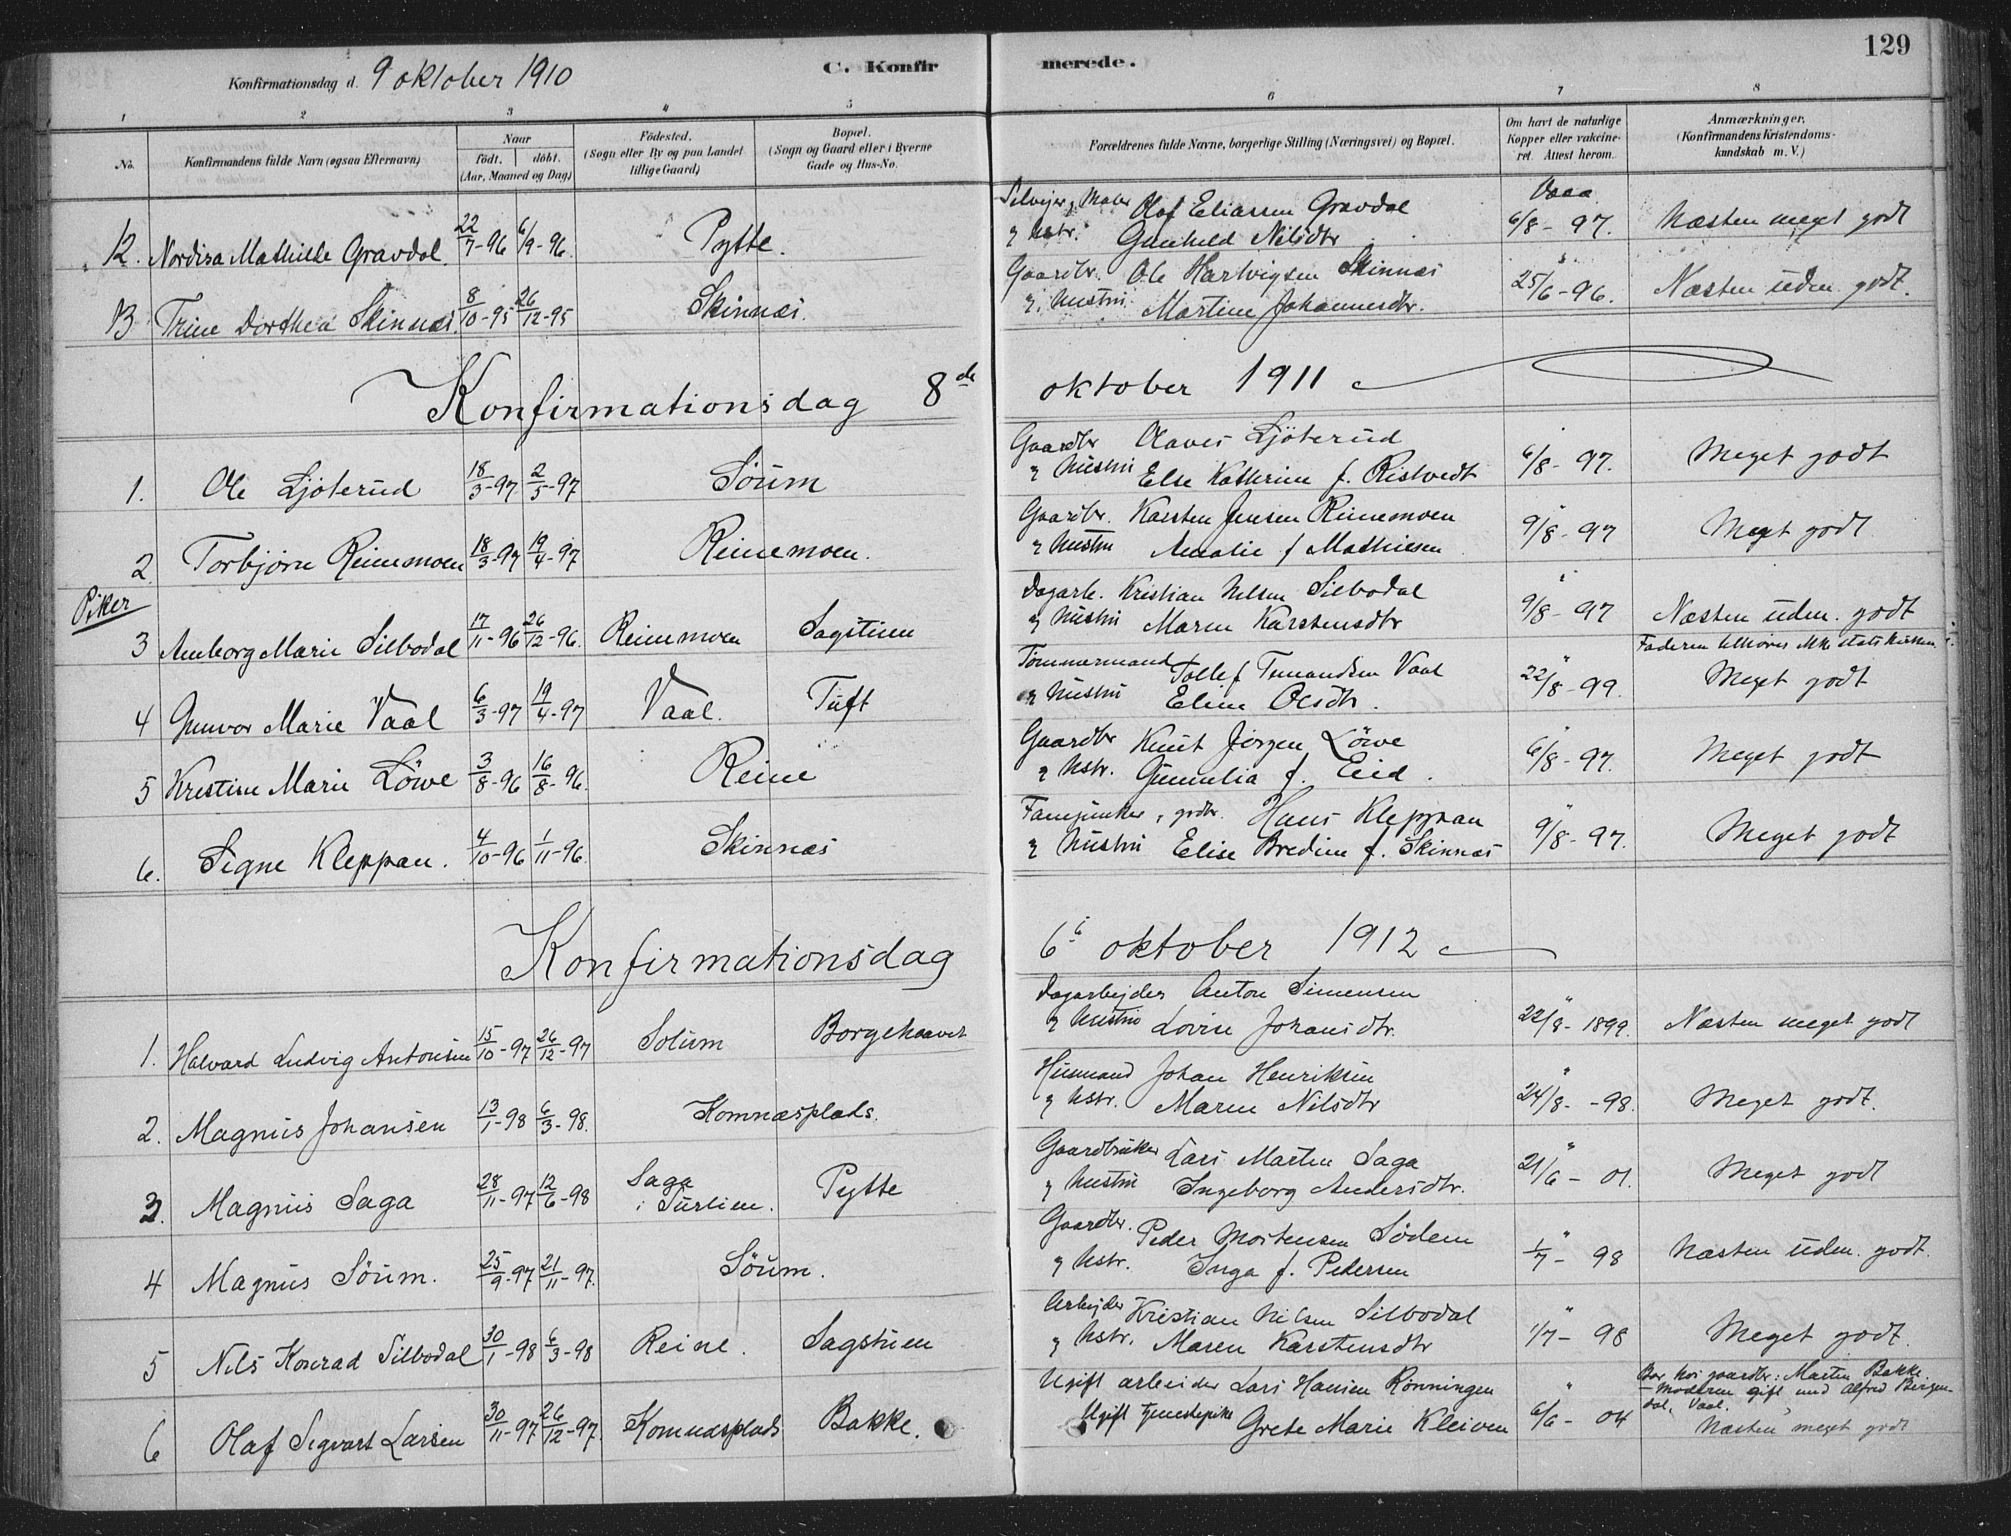 129
Konfirmationsdag d. 9 oktober 1910
C. Konfirmerede.
1 2 3 4 5 6 7 8
No.
Konfirmandens fulde Navn (ogsaa Efternavn)
Naar
födt. döbt.
(Aar, Maaned og Dag)
Födested.
(Sogn eller By og paa Landet
tillige Gaard)
Bopæl.
(Sogn og Gaard eller i Byerne
Gade og Hus-No.
Forældrenes fulde Navne, borgerlige Stilling (Næringsvei) og Bopæl.
Om havt de naturlige
Kopper eller vakcine-
ret. Attest herom.
Anmærkninger.
(Konfirmandens Kristendoms-
kundskab m. V.)
12. Nordisa Mathilde Gravdal. 22/7-96 6/9-96. Pytte. Selvejer, Maler Olaf Eliassen Gravdal
& hstr. Gunhild Nilsdtr 6/8-97. Næsten meget godt
13 Trine Dorthea Skinnæs 8/10-95 26/12-95 Skinnæs. Gaardbr. Ole Hartvigsen Skinnæs
& hustru Martine Johannesdtr. 25/6-96. Næsten uden. godt.
Konfirmationsdag 8de oktober 1911
1. Ole Ljöterud 18/3-97 2/5-97 Söum Gaardbr Olaves Ljöterud
& hustru Else Kathrine f. Ristvedt 6/8-97. Meget godt
2 Torbjörn Reinemoen 18/3-97 19/4-97 Reinemoen. Gaardbr. Karsten Jensen Reinemoen
& hustru Amalie f Mathiesen 9/8-97 Meget godt
Piker
3 Amborg Marie Silbodal 17/11-96 26/12-96. Reinemoen Sagstuen Dagarb. Kristian Nilsen Silbodal
& hustru Maren Karstensdtr 9/8-97 Næsten uden. godt
Faderen tilhörer ikke statskirken.
4 Gunvor Marie Vaal 6/3-97 19/4-97 Vaal. Tuft Tömmermand Tollef Temandsen Vaal
& hustru Eline Olsdtr. 22/8-99. Meget godt
5 Kristine Marie Löwe 3/8-96 16/8-96. Reine Gaardbr Knut Jörgen Löwe
& hstr. Gunnelia f. Eied. 6/8-97. Meget godt
6. Signe Kleppan. 4/10-96 1/11-96. Skinnæs Fanejunker, grdbr. Hans Kleppan
& hustru Elise Bredine f. Skinnæs 9/8-97. Meget godt
Konfirmationsdag 6te oktober 1912
1. Halvard Ludvig Antonsen 15/10-97 26/12-97 Solum Borgehaavet Dagarbejder Anton Simensen
& hustru Lovise Johansdtr. 22/8-1899. Næsten meget godt
2. Magnus Johansen 13/1-98 6/3-98. Komnæsplads. Husmand Johan Henriksen
& hstr. Maren Nilsdtr 24/8--98. Meget godt.
3. Magnus Saga 28/11-97 12/6-98 Saga
i Turlien. Pytte Gaardbruker Lars Marten Saga
& hustru Ingeborg Andersdtr. 21/6-01. Meget godt
4 Magnus Söum. 25/9-97 21/11-97. Söum. Gaardbr. Peder Mortensen Södem
& hstr. Inga f. Pedersen 1/7-98 Næsten uden. godt.
5 Nils Konrad Silbodal 30/1-98 6/3-98 Reine. Sagstuen Arbejder Kristian Nilsen Silbodal
& hstr. Maren Karstensdtr 1/7-98 Meget godt.
6 Olaf Sigvart Larsen 30/11-97 26/12-97. Komnæsplads Bakke. Ugift arbeider Lars Hansen Rönningen
Ugift tjenestepike Grete Marie Kleiven 6/6-04 Bor hos gaardbr: Marten Bakke.
– Moderen gift med Alfred Bergen-
dal, Vaal.
Næsten meget godt